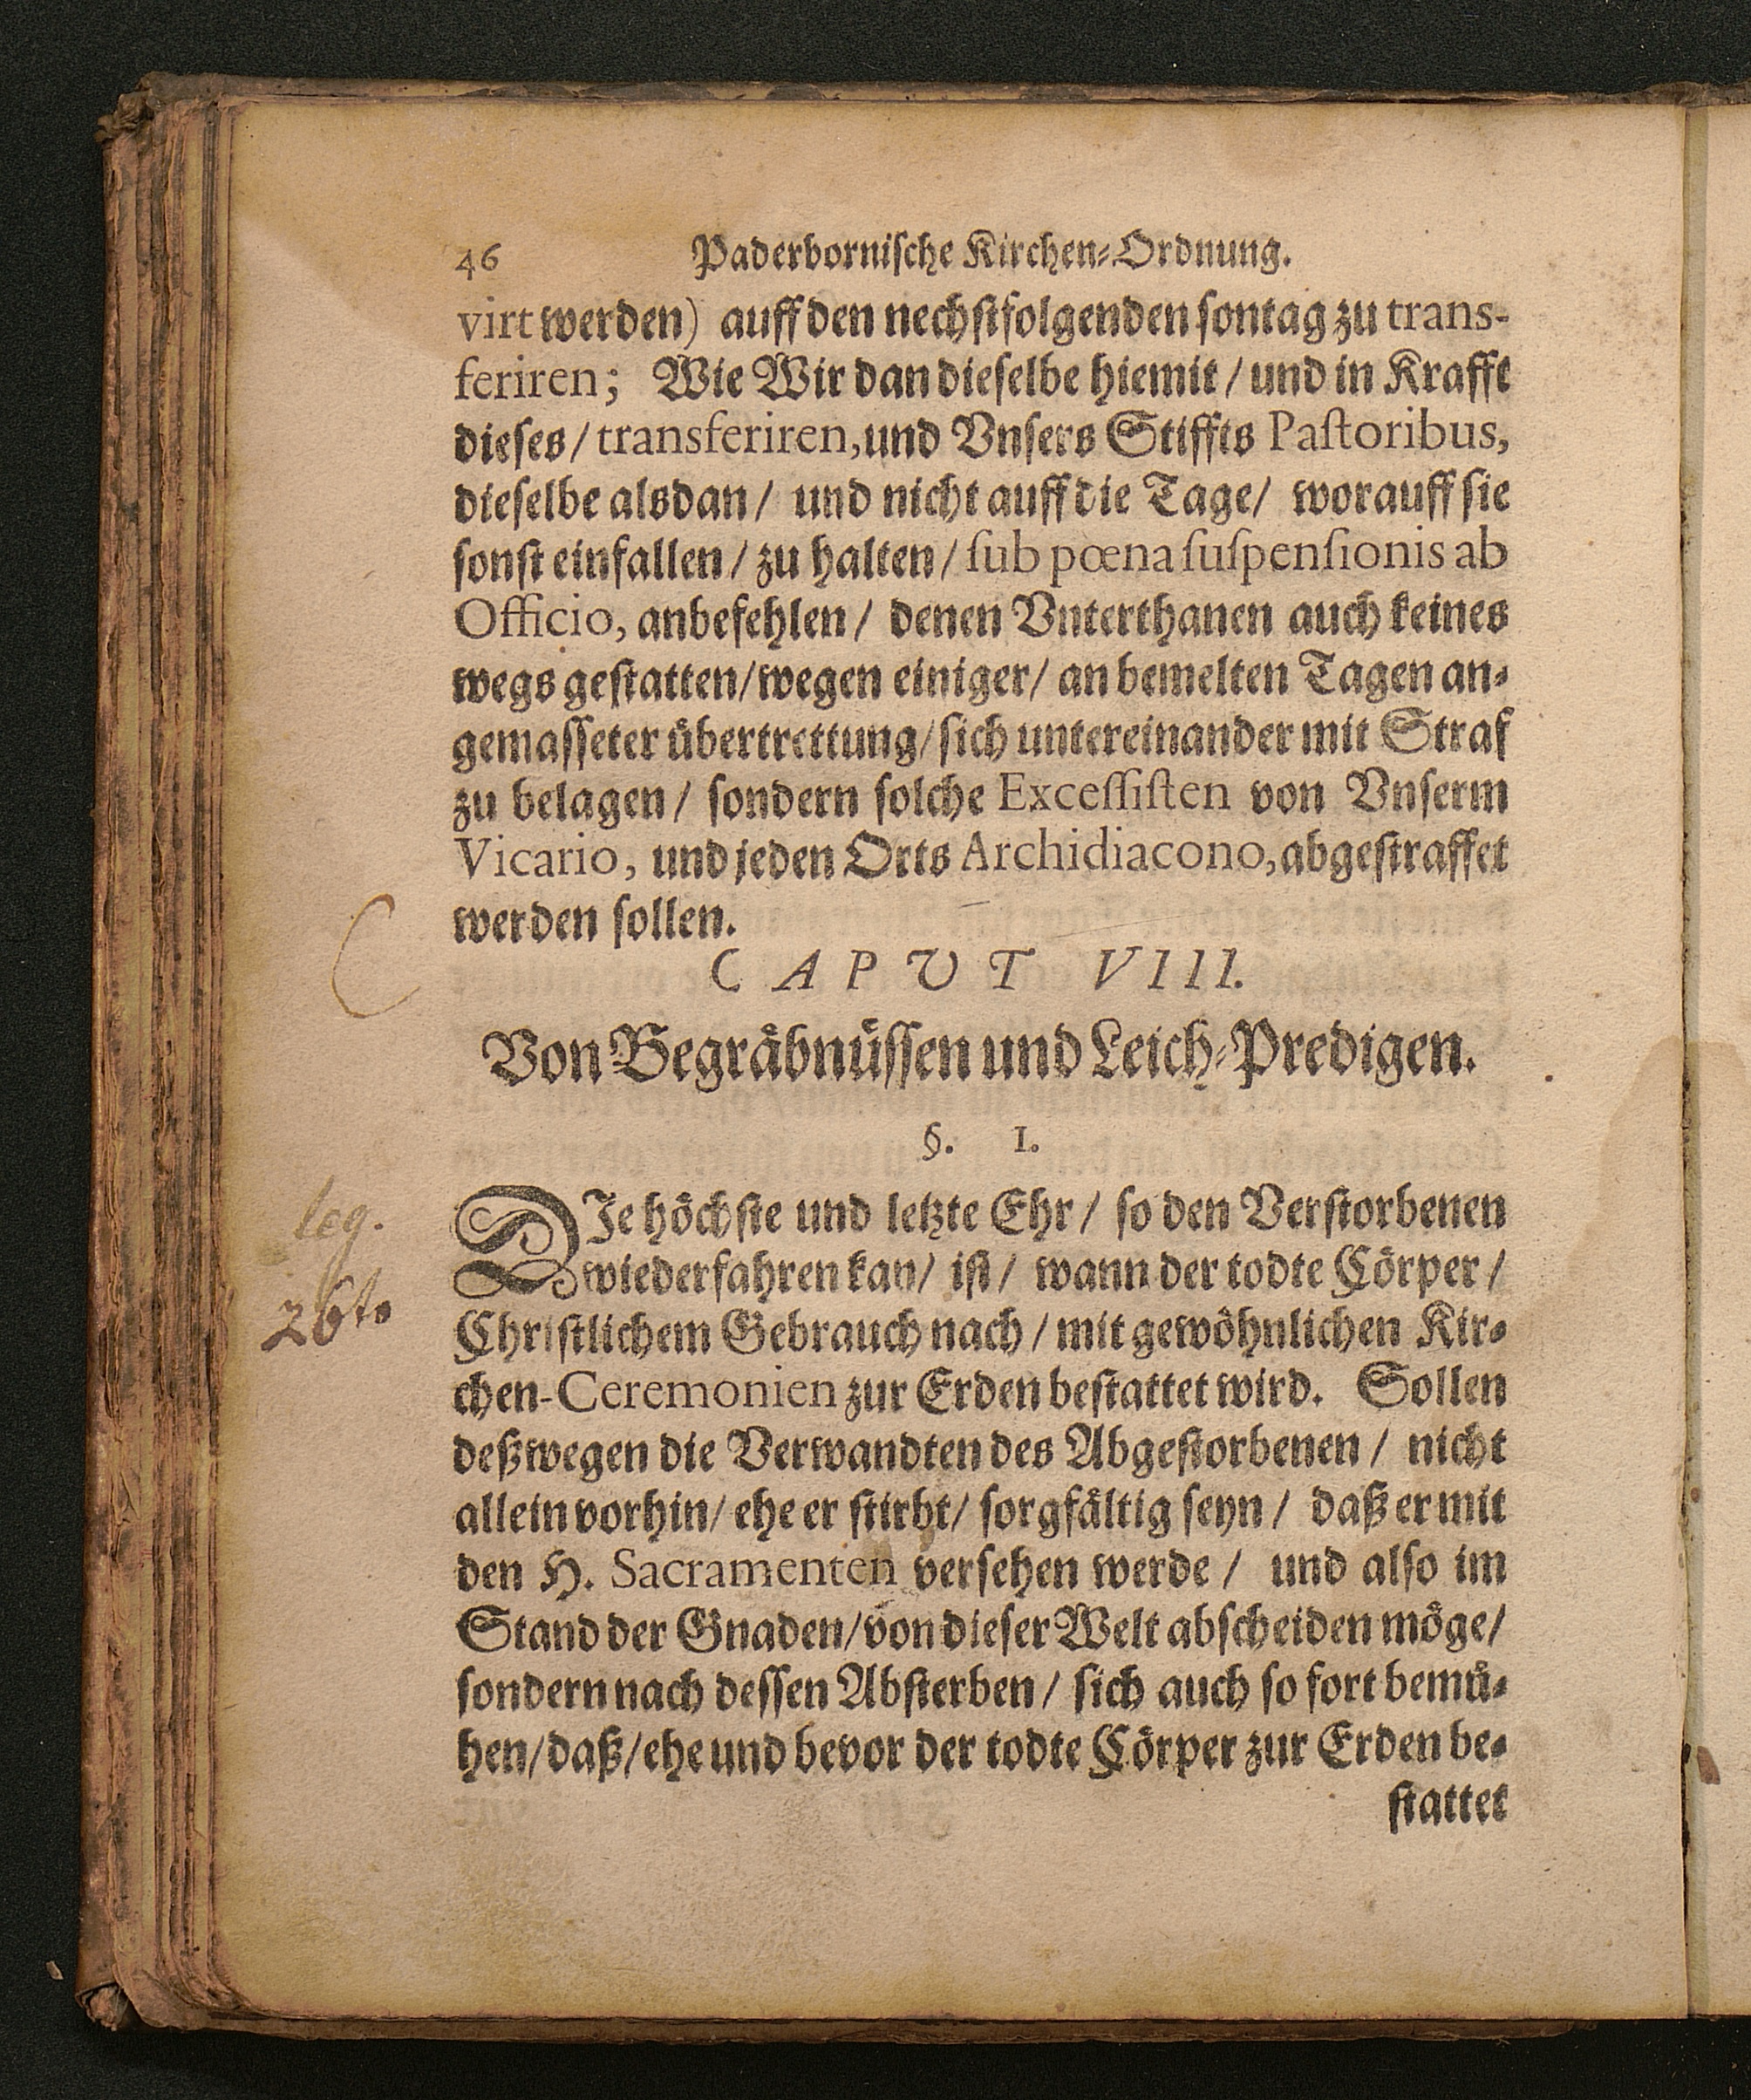 46 Paderbornische Kirchen-Ordnung.
virt werden) auff den nechstfolgenden sontag zu trans-
feriren; Wie Wir dan dieselbe hiemit / und in Krafft
dieses / transferiren, und Vnsers Stiffts Pastoribus,
dieselbe alsdan / und nicht auff die Tage / worauff sie
sonst einfallen / zu halten / sub pœna suspensionis ab
Officio, anbefehlen / denen Vnterthanen auch keines
wegs gestatten / wegen einiger / an bemelten Tagen an-
gemasseter übertrettung / sich untereinander mit Straf
zu belagen / sondern solche Excessisten von Vnserm
Vicario, und jeden Orts Archidiacono, abgestraffet
werden sollen.
CAPUT VIII.
Von Begräbnüssen und Leich-Predigen.
§. 1.
DIe höchste und letzte Ehr / so den Verstorbenen
leg.
wiederfahren kan / ist / wann der todte Cörper /
26to
Christlichem Gebrauch nach / mit gewöhnlichen Kir-
chen-Ceremonien zur Erden bestattet wird. Sollen
deßwegen die Verwandten des Abgestorbenen / nicht
allein vorhin / ehe er stirbt / sorgfältig seyn / daß er mit
den H. Sacramenten versehen werde / und also im
Stand der Gnaden / von dieser Welt abscheiden möge /
sondern nach dessen Absterben / sich auch so fort bemü-
hen / daß / ehe und bevor der todte Cörper zur Erden be-
stattet